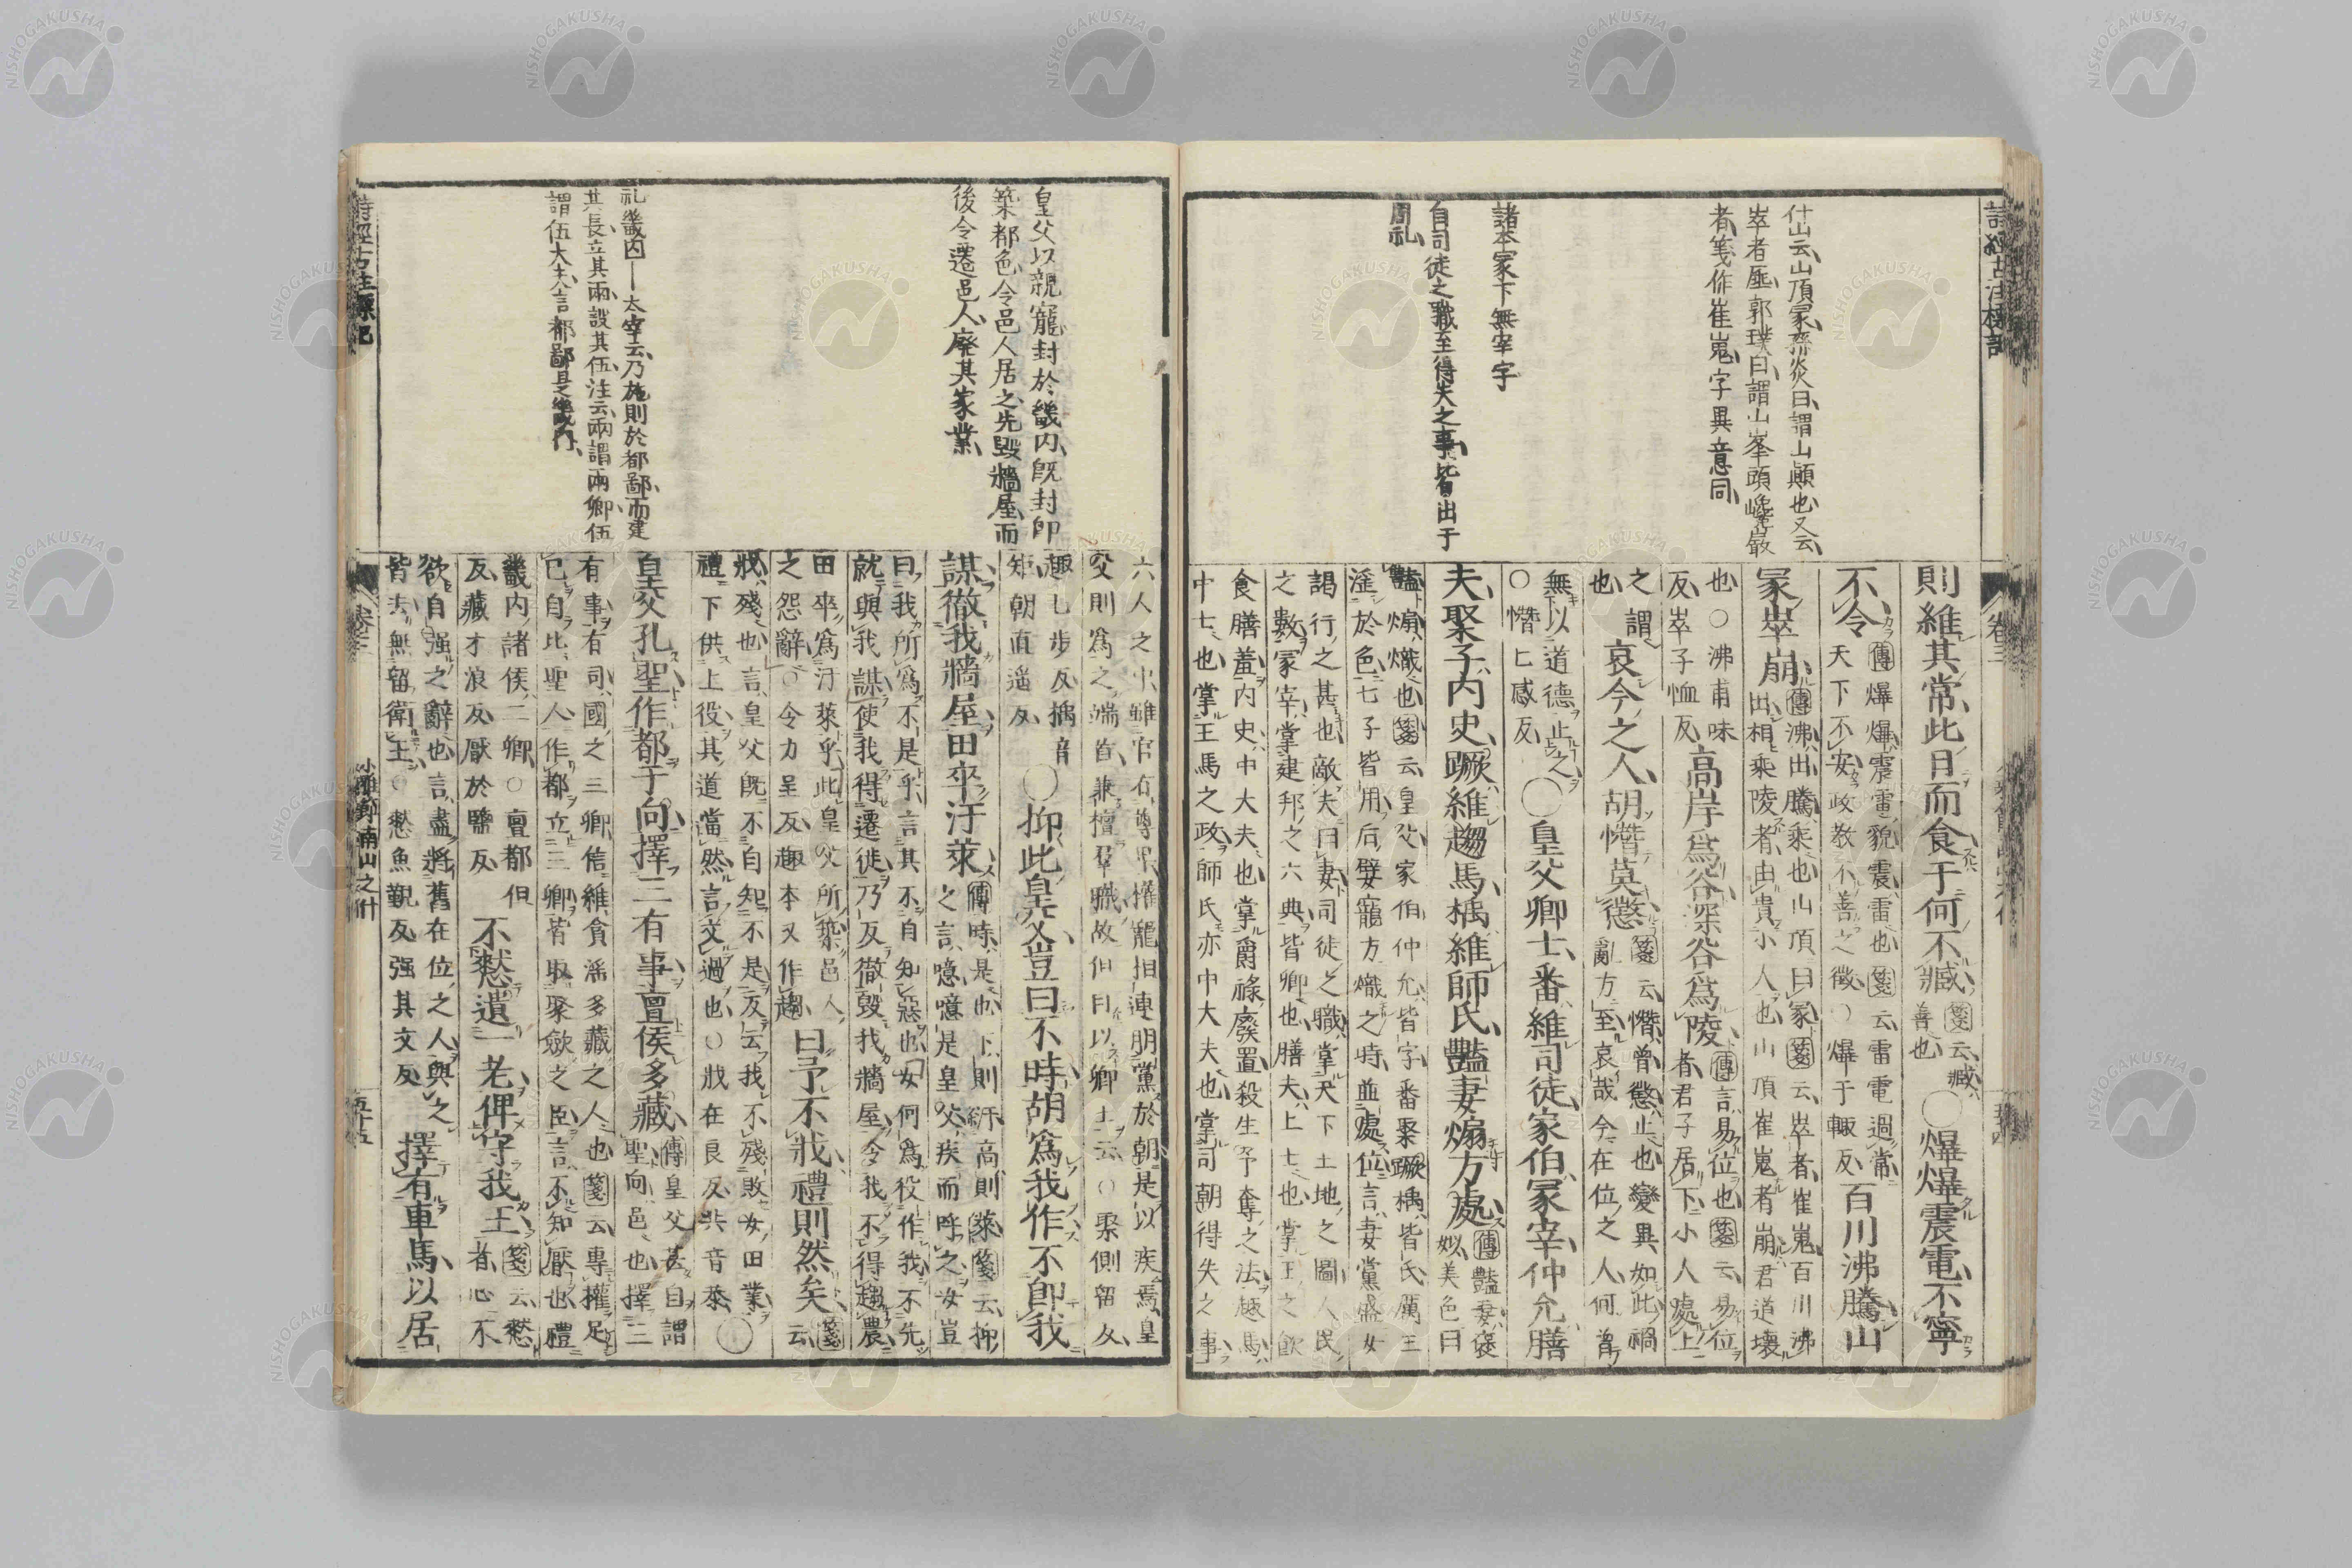 詩經古注標記
卷三
什山云山頂冢孫炎曰謂山巔也又云
崒者厜郭璞曰謂山峯頭巉巖
者箋作崔嵬字異意同
諸本冢下無宰字
自司徒之職至得失之事皆出于
周礼
則維其常此日而食于何不臧箋云臧善也○爗爗震電不寧
不令傳爗爗震電貌震雷也箋云雷電過常天下不安政教不善之徵○爗于輒反百川沸騰山
冢崒崩傳沸出騰乘也山頂曰冢箋云崒者崔嵬百川沸出相乘陵者由貴小人也山頂崔嵬者崩君道壞
也○沸甫味反崒子恤反高岸爲谷深谷爲陵傳言易位也箋云易位者君子居下小人處上
之謂也哀今之人胡憯莫懲箋云憯曾懲止也變異如此禍亂方至哀哉今在位之人何曾
無以道德止之○憯七感反○皇父卿士番維司徒家伯冢宰仲允膳
夫聚子内史蹶維趣馬楀維師氏豔妻煽方處傳豔妻褒姒美色曰
豔煽熾也箋云皇父家伯仲允皆字番聚蹶楀皆氏厲王
淫於色七子皆用后嬖寵方熾之時並處位言妻黨盛女
謁行之甚也敵夫曰妻司徒之職掌天下土地之圖人民
之數冢宰掌建邦之六典皆卿也膳夫上士也掌王之飲
食膳羞内史中大夫也掌爵祿廢置殺生予奪之法趣馬
中士也掌王馬之政師氏亦中大夫也掌司朝得失之事
皇父以親寵封於畿内既封卽
築都邑令邑人居之先毀牆屋而
後令遷邑人廢其家業
礼畿内—大宰云乃施則於都鄙而建
其長立其兩設其伍注云兩謂兩卿伍
謂伍大夫言都鄙是畿内
六人之中雖官有尊卑權寵相連朋黨於朝是以疾焉皇
父則爲之端首兼擅羣職故但目以卿士云○聚側留反
趣七步反楀音矩朝直遥反○抑此皇父豈曰不時胡爲我作不卽我
謀徹我牆屋田卒汙萊傳時是也下則汙高則萊箋云抑之言噫噫是皇父疾而呼之女豈
曰我所爲不是乎言其不自知惡也女何爲役作我不先
就與我謀使我得遷徙乃反徹毀我牆屋令我不得趨農
田卒爲汙萊乎此皇父所築邑人之怨辭○令力呈反趣本又作趨曰予不戕禮則然矣箋云
戕殘也言皇父既不自知不是反云我不殘敗女田業
禮下供上役其道當然言文過也○戕在良反共音恭○
皇父孔聖作都于向擇三有事亶侯多藏傳皇父甚自謂聖向邑也擇三
有事有司國之三卿信維貪淫多藏之人也箋云專權足
己自比聖人作都立三卿皆取聚歛之臣言不知厭也禮
畿内諸侯二卿○亶都但反藏才浪反厭於鹽反不憖遺一老俾守我王箋云憖者心不
欲自强之辭也言盡將舊在位之人與之
皆去無留衛王○憖魚覲反强其丈反擇有車馬以居
詩經古注標記
卷三
小雅節南山之什
五十五